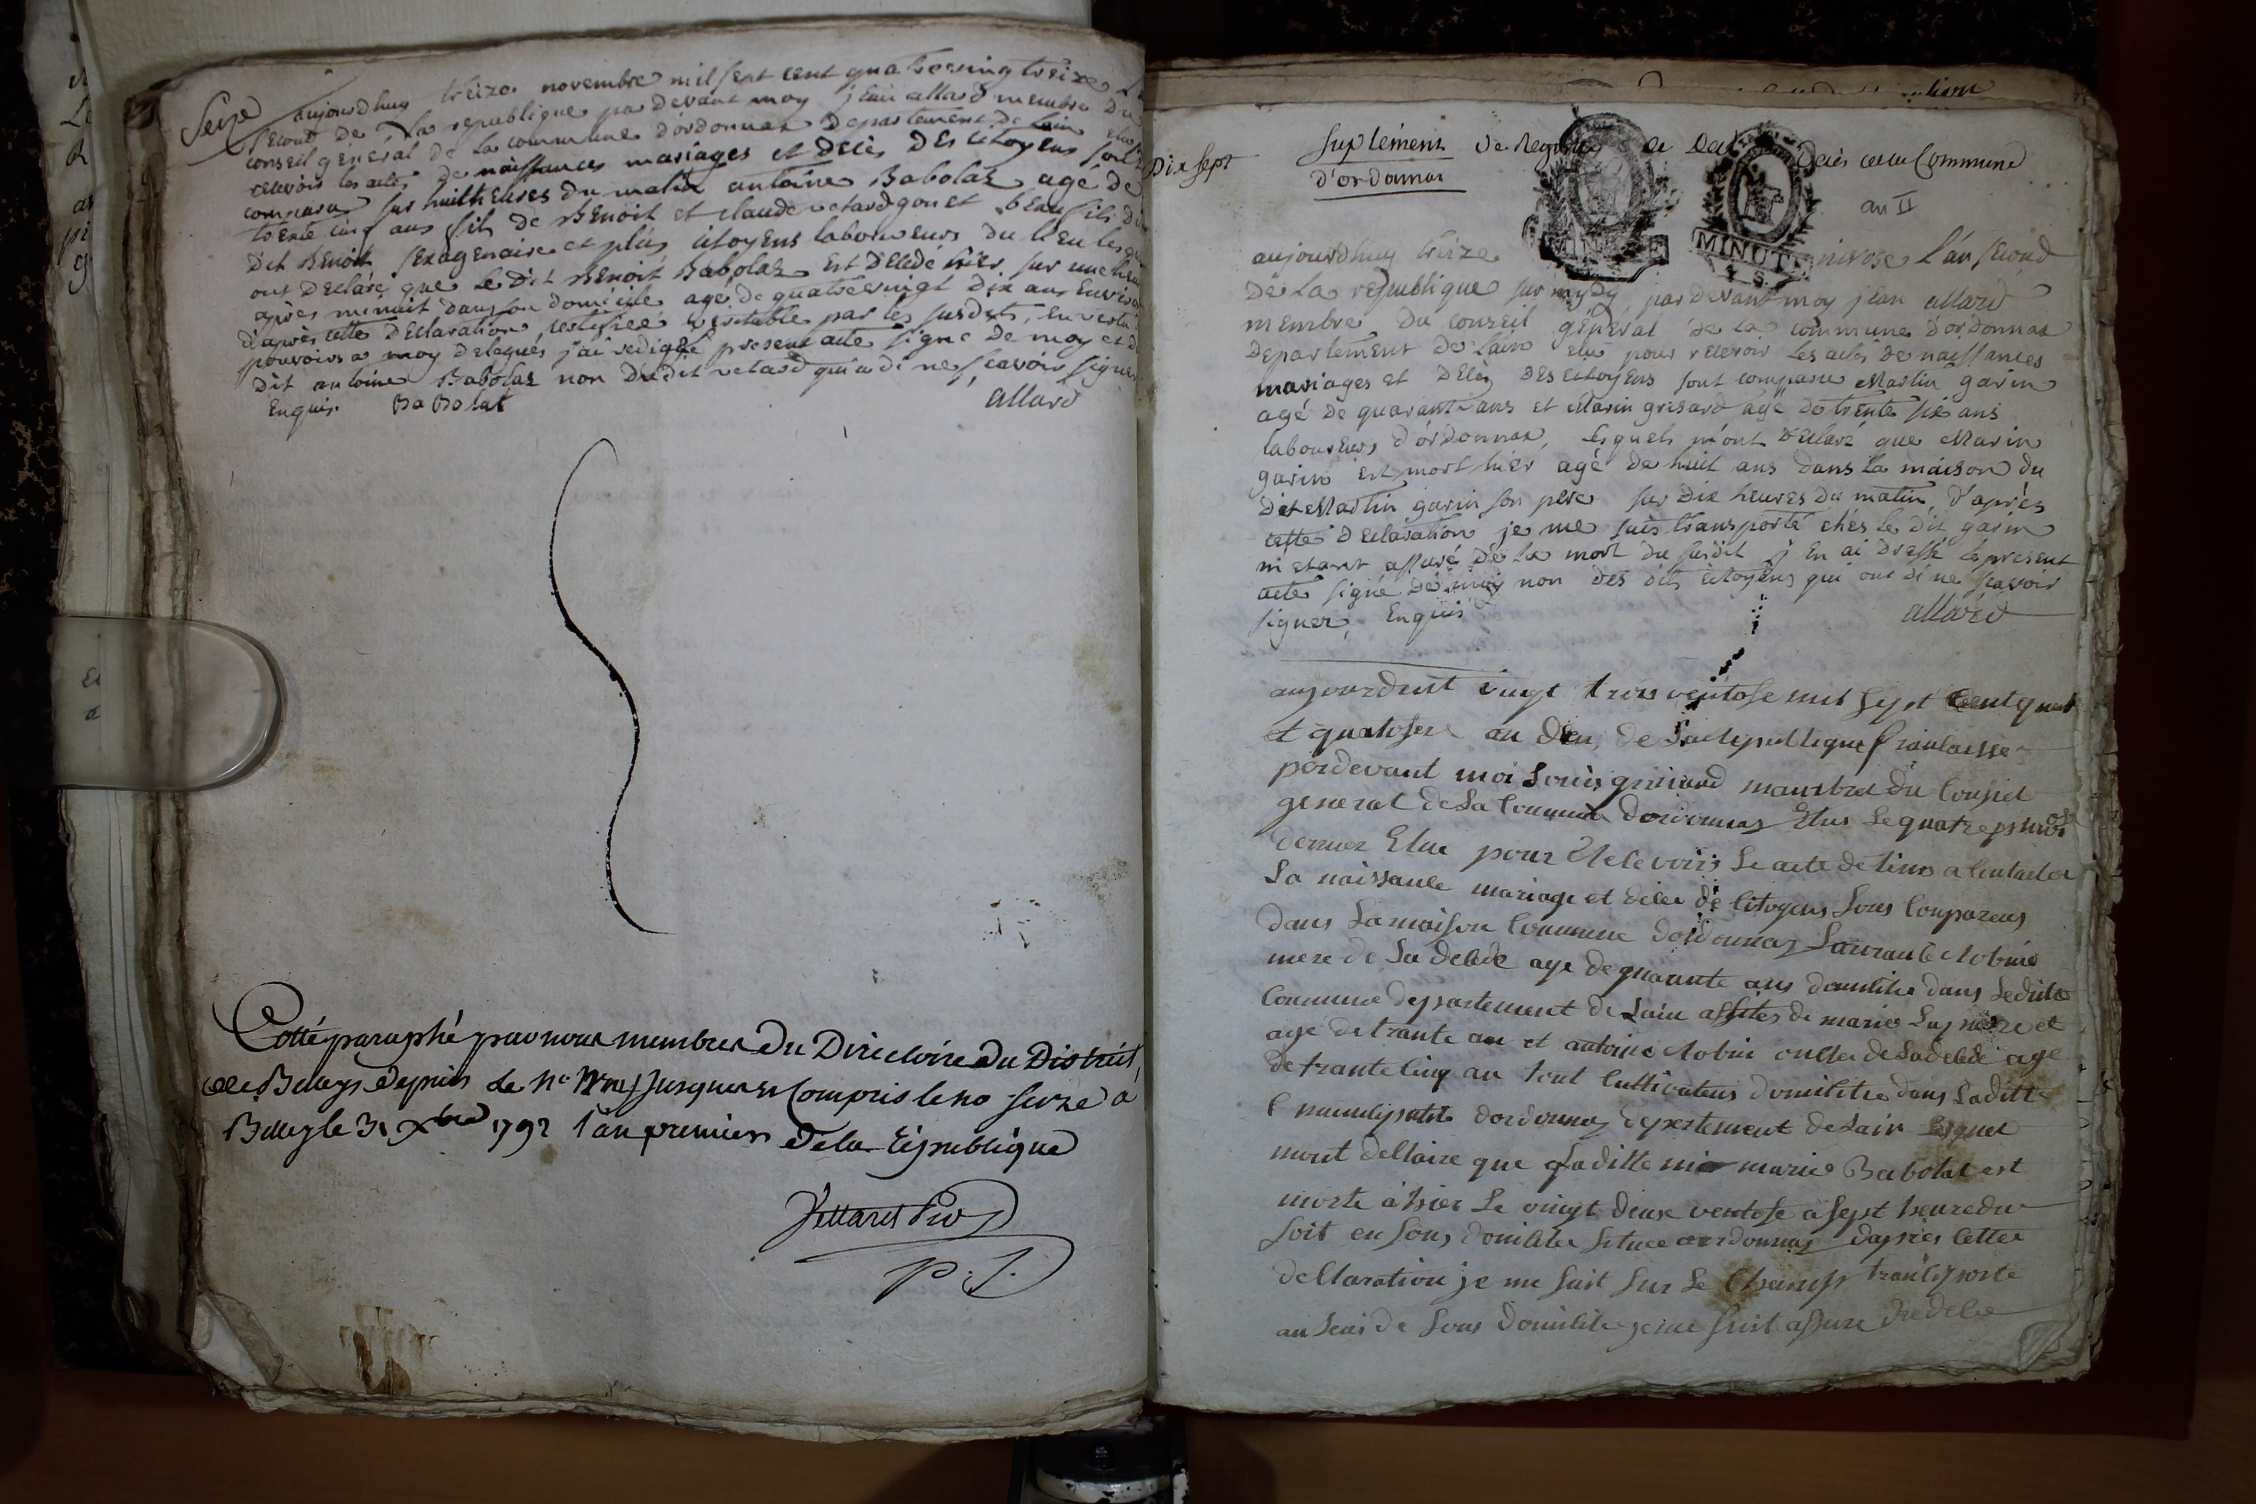 Seize
aujourdhuy treize novembre mil sept cent quatrevingt treize
second de la republique par devant moy jean allard membre du
conseil général de la commune d'ordonnas departement de lain elu
recevoir les actes de naissances mariages et décés des citoyens sont
comparu sur huit heures du matin antoine Babolat agé de
trente cinq ans fils de Benoit et claude vetard gonet beau fils du
dit Benoit sexagenaire et plus citoyens laboureurs du lieu lesquels
ont declaré que le dit Benoit Babolat est decedé hier sur une heure
après minuit dans son domicile agé de quatrevingt dix ans environ
d'après cette declaration certifiée veritable par les susdits, en vertu
pouvoirs a moy delegués j'ai redigé present acte signé de moy et du
dit antoine Babolat non dudit vetard qui a di ne scavoir signer
Enquis. BaBolat allard
Cotté paraphé par nous membres du Directoire du District
de Belley depuis le No 1er jusques et Compris le no seize a
Belley le 31 Xbre 1792 l'an premier de la République
P. J.
Dix sept
Suplément de Registre de décès de la Commune
d'ordonnas
an II
MINUTE
aujourdhuy treize nivose l'an second
de la republique sur mydy, par devant moy jean allard
membre du conseil général de la commune d'ordonnas
departement de lain elu pour recevoir les actes de naissances
mariages et décès des citoyens sont comparu Martin garin
agé de quarante ans et Marin grisard agé de trente six ans
laboureurs d'ordonnas, lesquels m'ont déclaré que Marin
garin est mort hier agé de huit ans dans la maison du
dit Martin garin son pere sur dix heures du matin, d'après
cette declaration je me suis transporté chés le dit garin
m'etant assuré de la mort du susdit j'en ai dressé le present
acte signé de moy non des dits citoyens qui ont di ne scavoir
signer, Enquis allard
aujourduit vingt trois ventose mil sept cent quat
et quatosere an deu de La republique franlaisse
pardevant moi Louis manbre du Conseil
general de la Commune dordonnas Elus le quatre
dernier Elue pour Relevoir le acte de
La naissanle mariage et décès de Citoyens sons Conpareus
dans La maison Commune dordonnas Robin
mere de La delede age de quarante ans domilitie dans Ledite
Commune departement de Lain assites de marie et
age de trante an et antoine Robin oncle de Ladelede age
de trante cinq an tout Cultivateurs domilitie dans Laditte
dordonnas departement de Lain Lesquel
mont dellaire que Laditte marie Babolat est
morte a hier Le vingt deux ventose a sept heure du
soit en sons domilile situee a ordonnas dapries lettee
dellaration je me suit sur Le Champs tranlsporte
au Leus de Sons domilile je me suit assure du